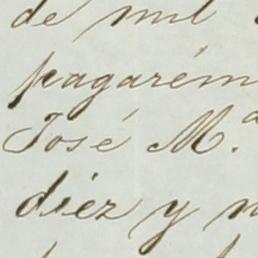 de mil
pagarém
José M.ª
diez y n